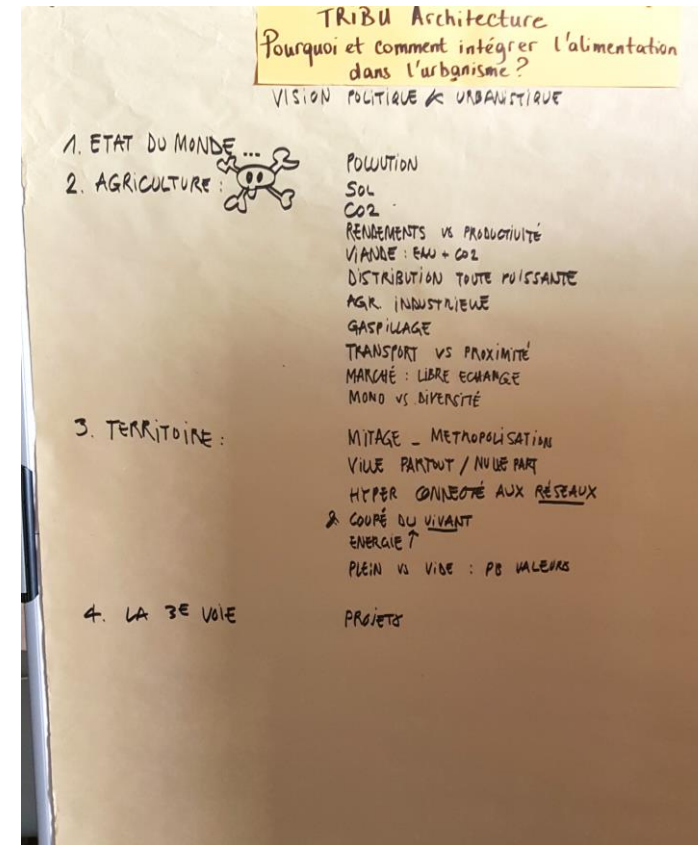 TRIBU Architecture
Pourquoi et comment intégrer l'alimentation
dans l'urbanisme ?
VISION POLITIQUE & URBANISTIQUE
1. ETAT DU MONDE ...
2. AGRICULTURE :
POLLUTION
SOL
CO2
RENDEMENTS VS PRODUCTIVITÉ
VIANDE : EAU + CO2
DISTRIBUTION TOUTE PUISSANTE
AGR. INDUSTRIELLE
GASPILLAGE
TRANSPORT VS PROXIMITÉ
MARCHÉ : LIBRE ECHANGE
MONO VS DIVERSITÉ
3. TERRITOIRE :
MITAGE - METROPOLISATION
VILLE PARTOUT / NULLE PART
HYPER CONNECTÉ AUX RÉSEAUX
& COUPÉ DU VIVANT
ENERGIE ↑
PLEIN VS VIDE : PB VALEURS
4. LA 3E VOIE
PROJETS